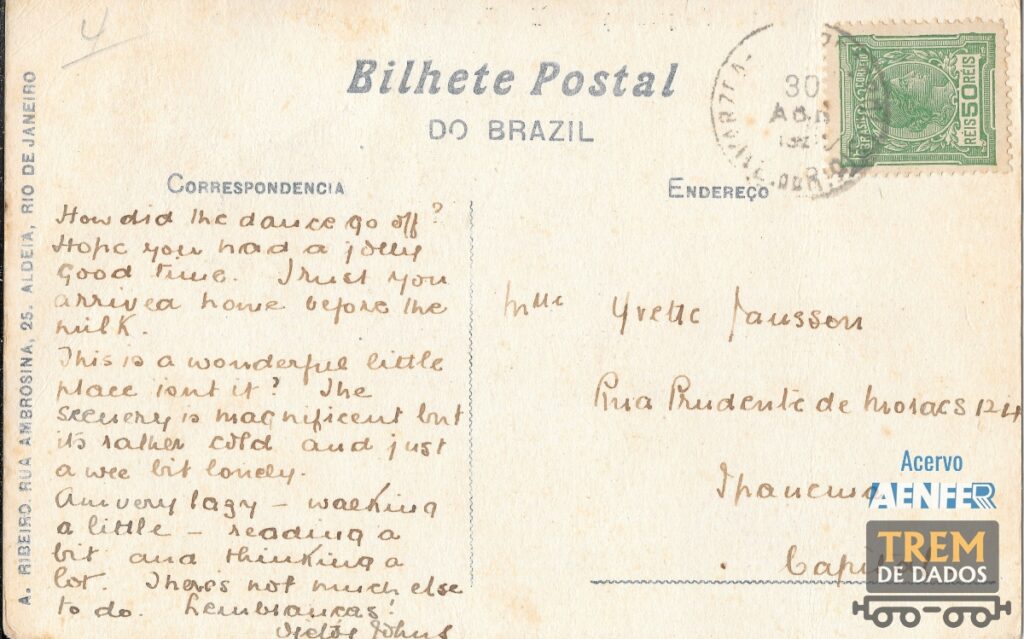 4
Bilhete Postal
DO BRAZIL
30
ABR
REIS 50 REIS
CORREIO
CORRESPONDENCIA
ENDEREÇO
A. RIBEIRO. RUA AMBROSINA, 25. ALDEIA, RIO DE JANEIRO
How did the dance go off?
Hope you had a jolly
good time. Trust you
arrived home before the
milk.
This is a wonderful little
place isnt it? The
scenery is magnificent but
its rather cold and just
a wee bit lonely.
Am very lazy – walking
a little – reading a
bit and thinking a
lot. There's not much else
to do. Lembrancas!
Johns
Mlle Yvette Jansson
Rua Prudente de Moraes 124
Ipanema
Capital
Acervo
AENFER
TREM
DE DADOS